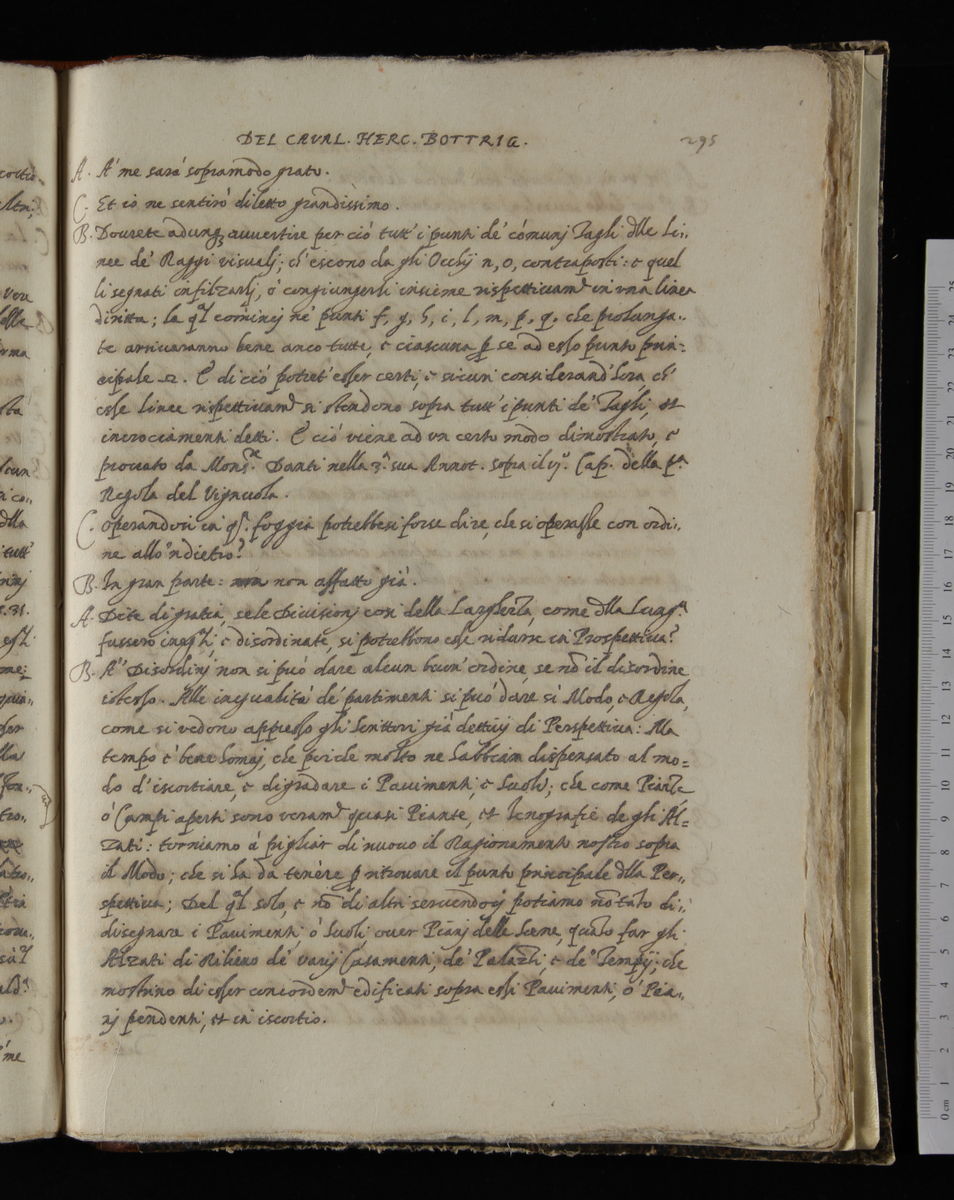 DEL CAVAL. HERC. BOTTRIG. 295
A. A' me sarà sopramodo grato.
C. Et io ne sentirò diletto grandissimo.
B. Dovrete adunq; avvertire per ciò tutt' i punti de' cómunj Tagli dlle Li„
nee de' Raggi visualj; ch' escono da gli Occhij n, o, contraposti: e quel
li segnati infilzarlj, ò congiungerli insieme rispettivam.te in vna linea
diritta; la q̃l cominci né punti f, g, h, i, l, m, p, q, che prolunga„
te arrivaranno bene anco tutte, e ciascuna p sé ad esso punto prin=
cipale. E di ciò potret' esser certi, e sicuri considerand' hora ch'
esse linee rispettivam.te si stendono sopra tutt' i punti de' Tagli, et
incrociamenti detti. E ciò viene ad vn certo modo dimostrato, e
provato da Mons.re Danti nella 3.a sua Annot. sopra il vj.o Cap. della p.a
Regola del Vignuola.
C. Operandosi in q̃sta foggia potrebbesi forse dire, che si operasse con ordi„
ne allo 'ndietro?
B. In gran parte: non affatto già.
A. Dite di gratia, se le Divisionj cosi della Larghezza, come dlla Lung.a
fussero ineq̃li, e disordinate, si potrebbono esse ridurre in Prospettiva?
B. A' Disordinj non si può dare alcun buon' ordine, se nõ il disordine
istesso. Alle inequalità de' partimenti si può dare si Modo, e Regola,
come si vedono appresso gli Scrittori già dettivj di Perspettiva: Ma
tempo è bene homaj, che perche molto ne habbiam dispensato al mo=
do d' iscortiare, e digradare i Pavimenti, e Suoli; che come Piazze
ò Campi aperti sono veram.te quasi Piante, et Icnografie de gli Al=
zati: torniamo à pigliar di nuovo il Ragionamento nostro sopra
il Modo; che si ha da tenere p ritrovare il punto principale dlla Per„
spettiva; Del q̃l solo, e nõ di altri servendocj potiamo nõ tãto di„
disegnare i Pavimenti, ò Suoli, over Pianj delle Scene, quãto far gli
Alzati di Rilievo de' varij Casamenti, de' Palazzi, e de' Tempij; che
mostrino di esser concordem.te edificati sopra essi Pavimenti, ò Pia„
nj pendenti, et in iscortio.